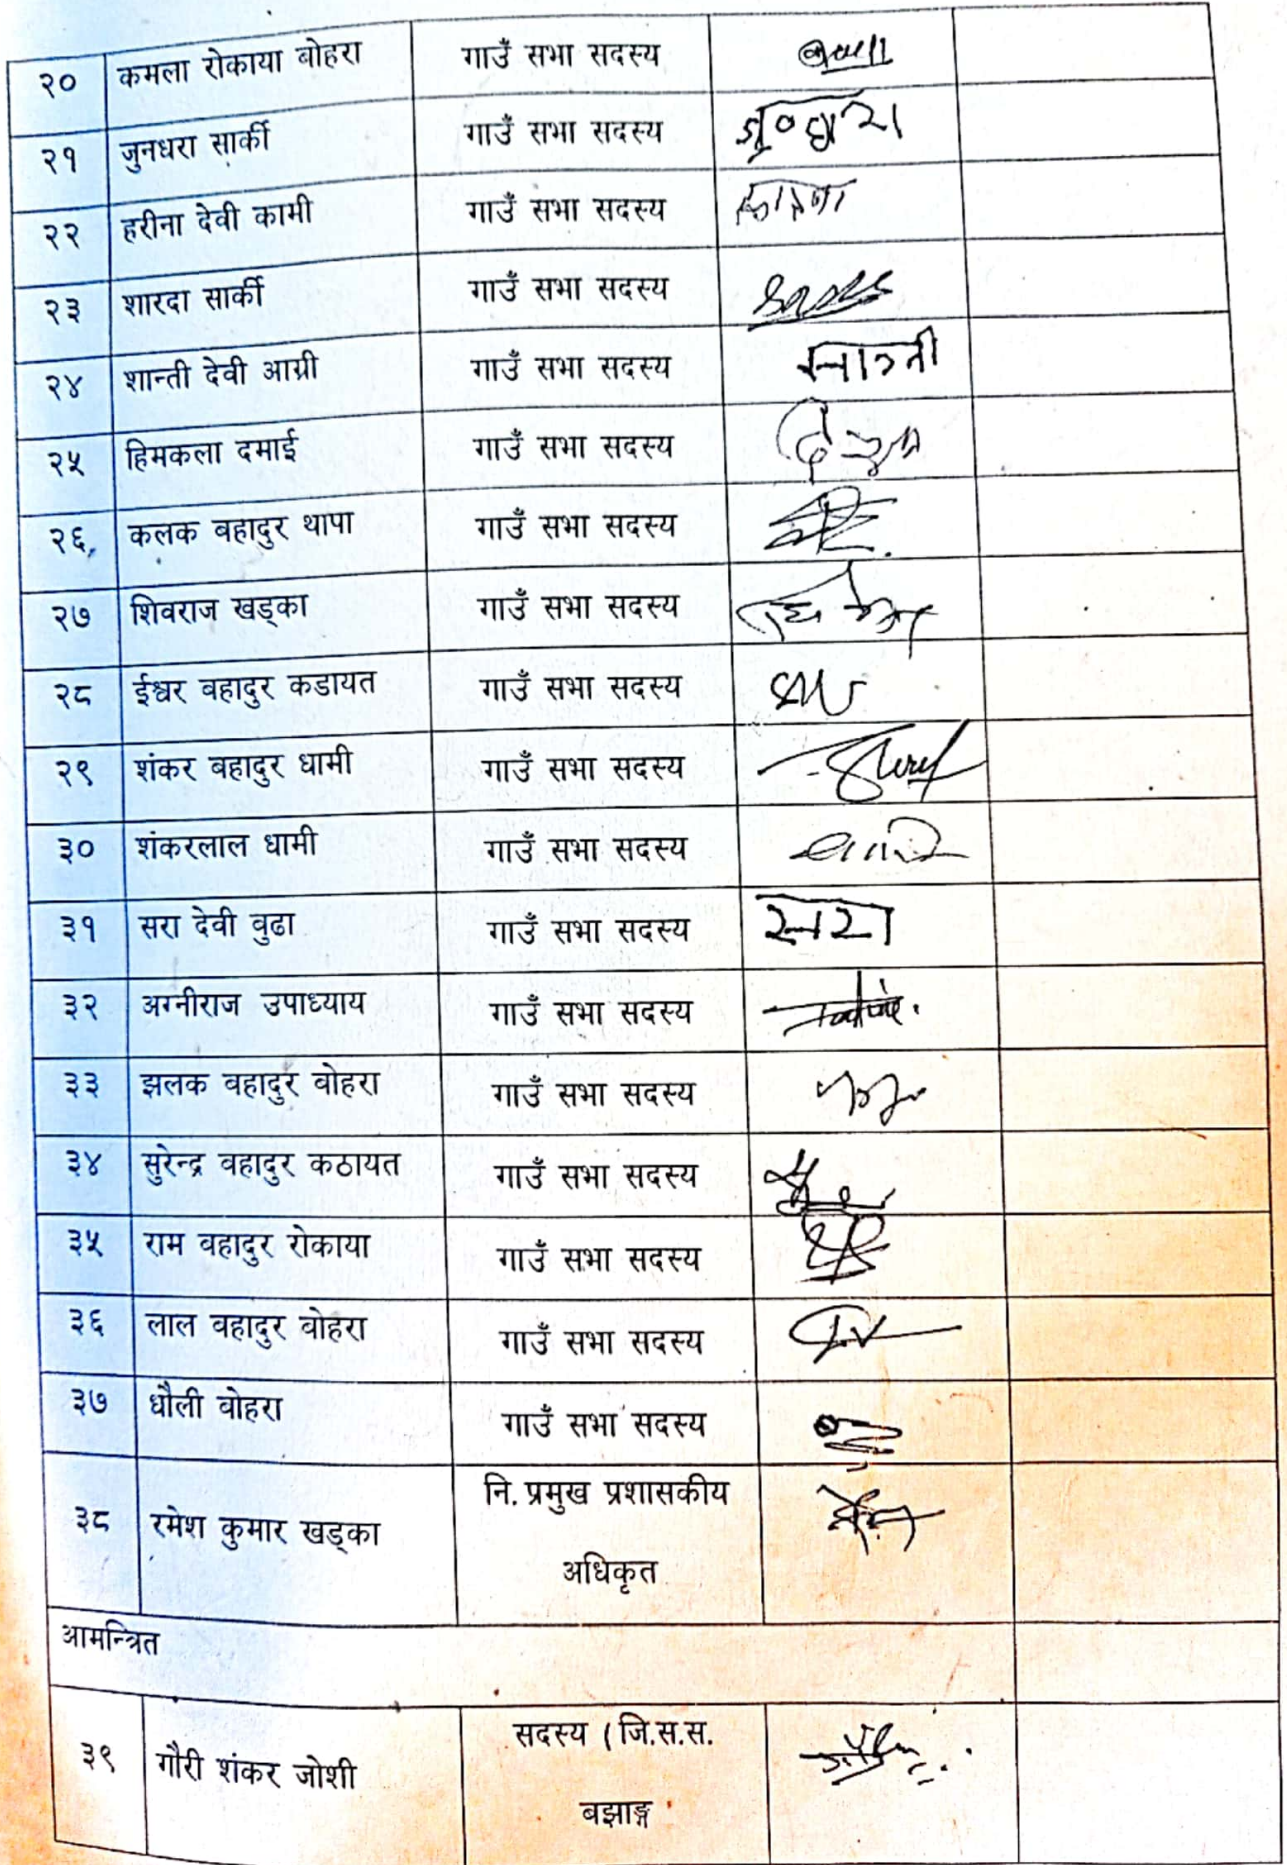 २० कमला रोकाया बोहरा गाउँ सभा सदस्य
२१ जुनधरा सार्की गाउँ सभा सदस्य
२२ हरीना देवी कामी गाउँ सभा सदस्य
२३ शारदा सार्की गाउँ सभा सदस्य
२४ शान्ती देवी आग्री गाउँ सभा सदस्य
२५ हिमकला दमाई गाउँ सभा सदस्य
२६ कलक बहादुर थापा गाउँ सभा सदस्य
२७ शिवराज खड्का गाउँ सभा सदस्य
२८ ईश्वर बहादुर कडायत गाउँ सभा सदस्य
२९ शंकर बहादुर धामी गाउँ सभा सदस्य
३० शंकरलाल धामी गाउँ सभा सदस्य
३१ सरा देवी वुढा गाउँ सभा सदस्य सरा
३२ अग्नीराज उपाध्याय गाउँ सभा सदस्य
३३ झलक वहादुर वोहरा गाउँ सभा सदस्य
३४ सुरेन्द्र वहादुर कठायत गाउँ सभा सदस्य
३५ राम वहादुर रोकाया गाउँ सभा सदस्य
३६ लाल वहादुर वोहरा गाउँ सभा सदस्य
३७ धौली वोहरा गाउँ सभा सदस्य
३८ रमेश कुमार खड्का नि. प्रमुख प्रशासकीय
अधिकृत
आमन्त्रित
३९ गौरी शंकर जोशी सदस्य (जि.स.स.
बझाङ्ग